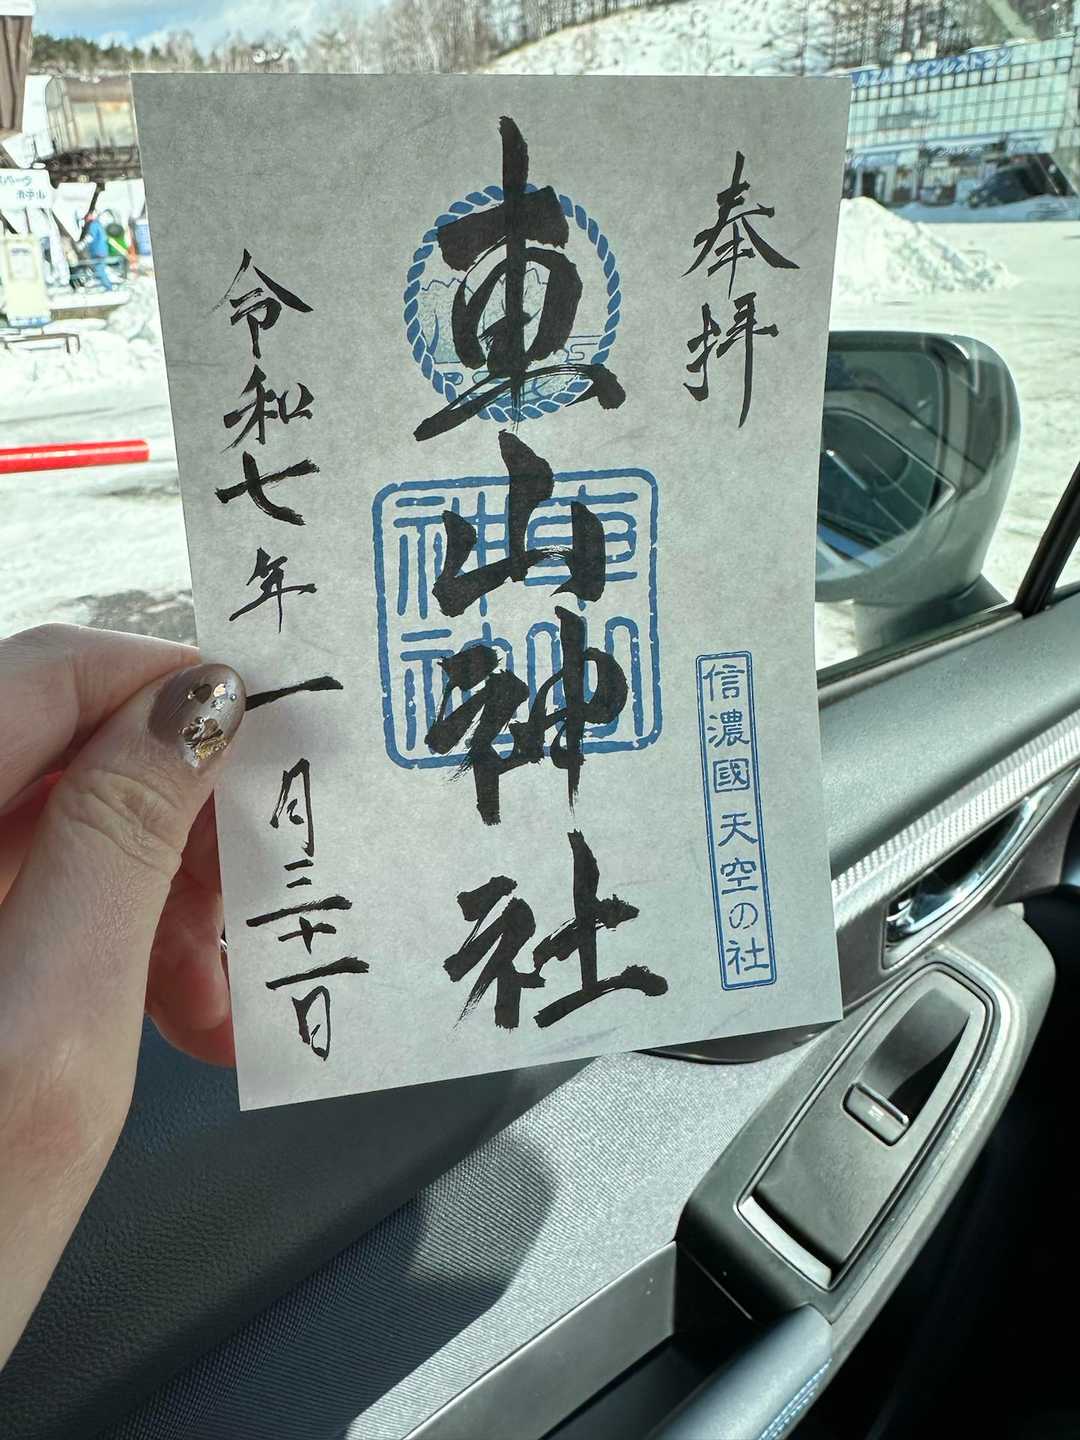 奉拝
車山神社
信濃國 天空の社
令和七年一月三十一日
メインレストラン